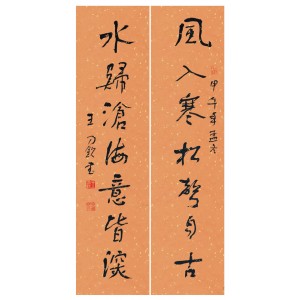 風入寒松聲自古
甲午年孟冬
水歸滄海意皆深